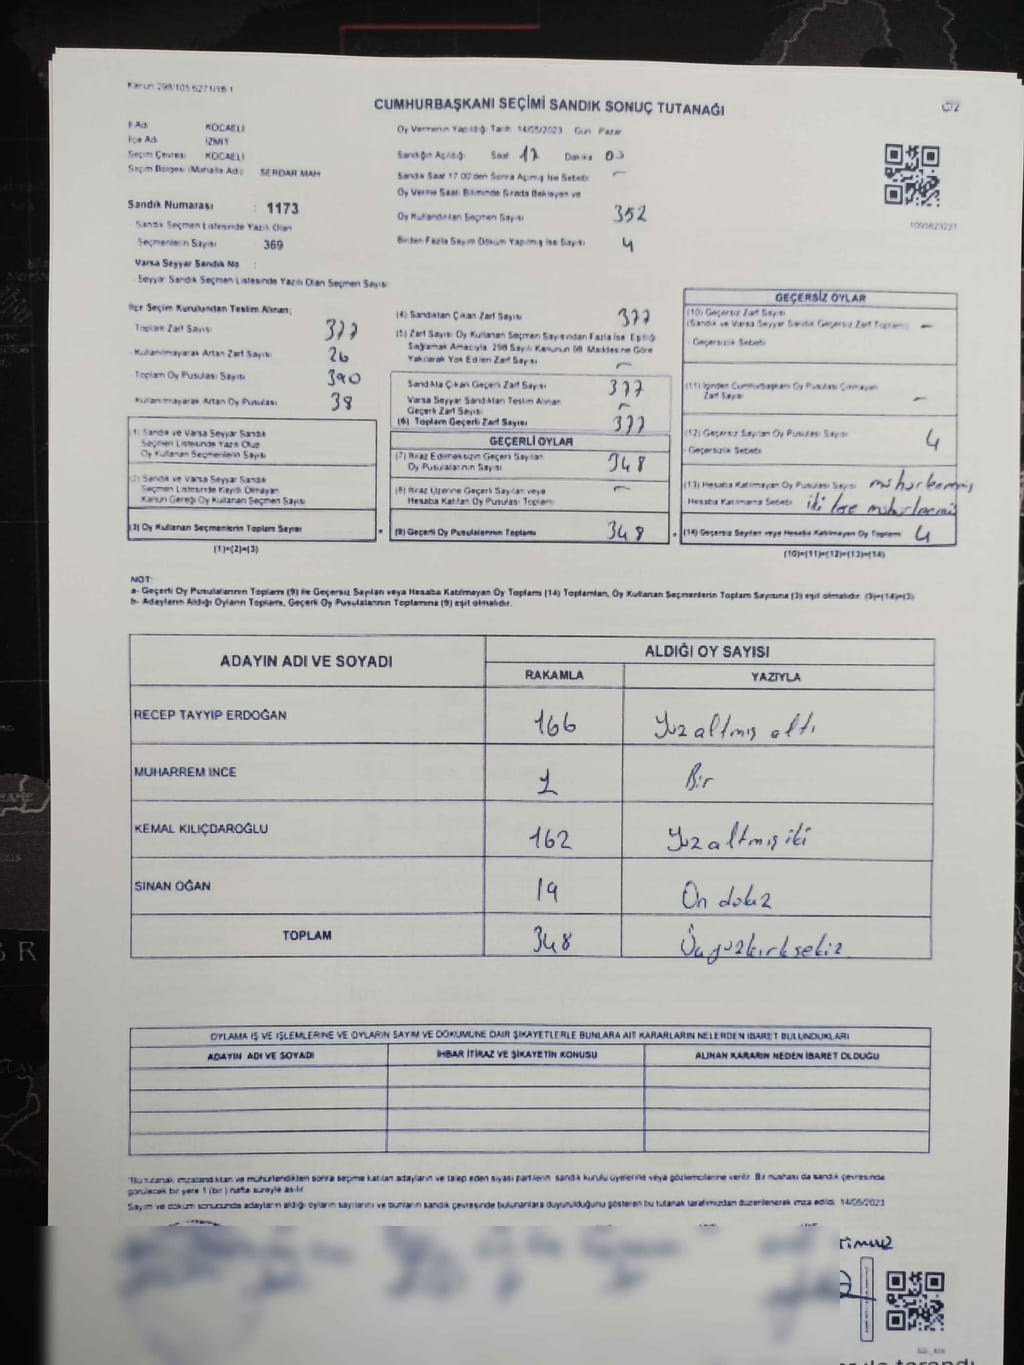 Kanun 298/105 6271/18-1
CUMHURBAŞKANI SEÇİMİ SANDIK SONUÇ TUTANAĞI
İl Adı KOCAELİ
İlçe Adı İZMİT
Seçim Çevresi KOCAELİ
Seçim Bölgesi (Mahalle Adı) SERDAR MAH
Sandık Numarası : 1173
Sandık Seçmen Listesinde Yazılı Olan
Seçmenlerin Sayısı : 369
Varsa Seyyar Sandık No :
Seyyar Sandık Seçmen Listesinde Yazılı Olan Seçmen Sayısı
Oy Vermenin Yapıldığı Tarih 14/05/2023 Gün Pazar
Sandığın Açıldığı Saat 17 Dakika 00
Sandık Saat 17:00'den Sonra Açılmış İse Sebebi —
Oy Verme Saati Bitiminde Sırada Bekleyen ve
Oy Kullandırılan Seçmen Sayısı 352
Birden Fazla Sayım Döküm Yapılmış İse Sayısı 4
1093823227
İlçe Seçim Kurulundan Teslim Alınan;
Toplam Zarf Sayısı 377
Kullanılmayarak Artan Zarf Sayısı 26
Toplam Oy Pusulası Sayısı 390
Kullanılmayarak Artan Oy Pusulası 38
(1) Sandık ve Varsa Seyyar Sandık
Seçmen Listesinde Yazılı Olup
Oy Kullanan Seçmenlerin Sayısı
(2) Sandık ve Varsa Seyyar Sandık
Seçmen Listesinde Kayıtlı Olmayan
Kanun Gereği Oy Kullanan Seçmen Sayısı
(3) Oy Kullanan Seçmenlerin Toplam Sayısı
(1)+(2)=(3)
(4) Sandıktan Çıkan Zarf Sayısı 377
(5) Zarf Sayısı Oy Kullanan Seçmen Sayısından Fazla İse, Eşitliği
Sağlamak Amacıyla, 298 Sayılı Kanunun 98. Maddesine Göre
Yakılarak Yok Edilen Zarf Sayısı —
Sandıkta Çıkan Geçerli Zarf Sayısı 377
Varsa Seyyar Sandıktan Teslim Alınan
Geçerli Zarf Sayısı —
(6) Toplam Geçerli Zarf Sayısı 377
GEÇERLİ OYLAR
(7) İtiraz Edilmeksizin Geçerli Sayılan
Oy Pusulalarının Sayısı 348
(8) İtiraz Üzerine Geçerli Sayılan veya
Hesaba Katılan Oy Pusulası Toplamı —
(9) Geçerli Oy Pusulalarının Toplamı 348
GEÇERSİZ OYLAR
(10) Geçersiz Zarf Sayısı
(Sandık ve Varsa Seyyar Sandık Geçersiz Zarf Toplamı) —
- Geçersizlik Sebebi
(11) İçinden Cumhurbaşkanı Oy Pusulası Çıkmayan
Zarf Sayısı —
(12) Geçersiz Sayılan Oy Pusulası Sayısı 4
- Geçersizlik Sebebi
(13) Hesaba Katılmayan Oy Pusulası Sayısı mühürlenmemiş
Hesaba Katılmama Sebebi iki kere mühürlenmiş
(14) Geçersiz Sayılan veya Hesaba Katılmayan Oy Toplamı 4
(10)+(11)+(12)+(13)=(14)
NOT:
a- Geçerli Oy Pusulalarının Toplamı (9) ile Geçersiz Sayılan veya Hesaba Katılmayan Oy Toplamı (14) Toplamları, Oy Kullanan Seçmenlerin Toplam Sayısına (3) eşit olmalıdır. (9)+(14)=(3)
b- Adayların Aldığı Oyların Toplamı, Geçerli Oy Pusulalarının Toplamına (9) eşit olmalıdır.
ADAYIN ADI VE SOYADI ALDIĞI OY SAYISI
RAKAMLA YAZIYLA
RECEP TAYYİP ERDOĞAN 166 Yüz altmış altı
MUHARREM İNCE 1 Bir
KEMAL KILIÇDAROĞLU 162 Yüz altmış iki
SİNAN OĞAN 19 On dokuz
TOPLAM 348 Üçyüzkırksekiz
OYLAMA İŞ VE İŞLEMLERİNE VE OYLARIN SAYIM VE DÖKÜMÜNE DAİR ŞİKAYETLERLE BUNLARA AİT KARARLARIN NELERDEN İBARET BULUNDUKLARI
ADAYIN ADI VE SOYADI İHBAR İTİRAZ VE ŞİKAYETİN KONUSU ALINAN KARARIN NEDEN İBARET OLDUĞU
"Bu tutanak imzalandıktan ve mühürlendikten sonra seçime katılan adayların ve talep eden siyasi partilerin sandık kurulu üyelerine veya gözlemcilerine verilir. Bir nüshası da sandık çevresinde
görülecek bir yere 1 (bir) hafta süreyle asılır
Sayım ve döküm sonucunda adayların aldığı oyların sayılarını ve bunların sandık çevresinde bulunanlara duyurulduğunu gösteren bu tutanak tarafımızdan düzenlenerek imza edildi. 14/05/2023